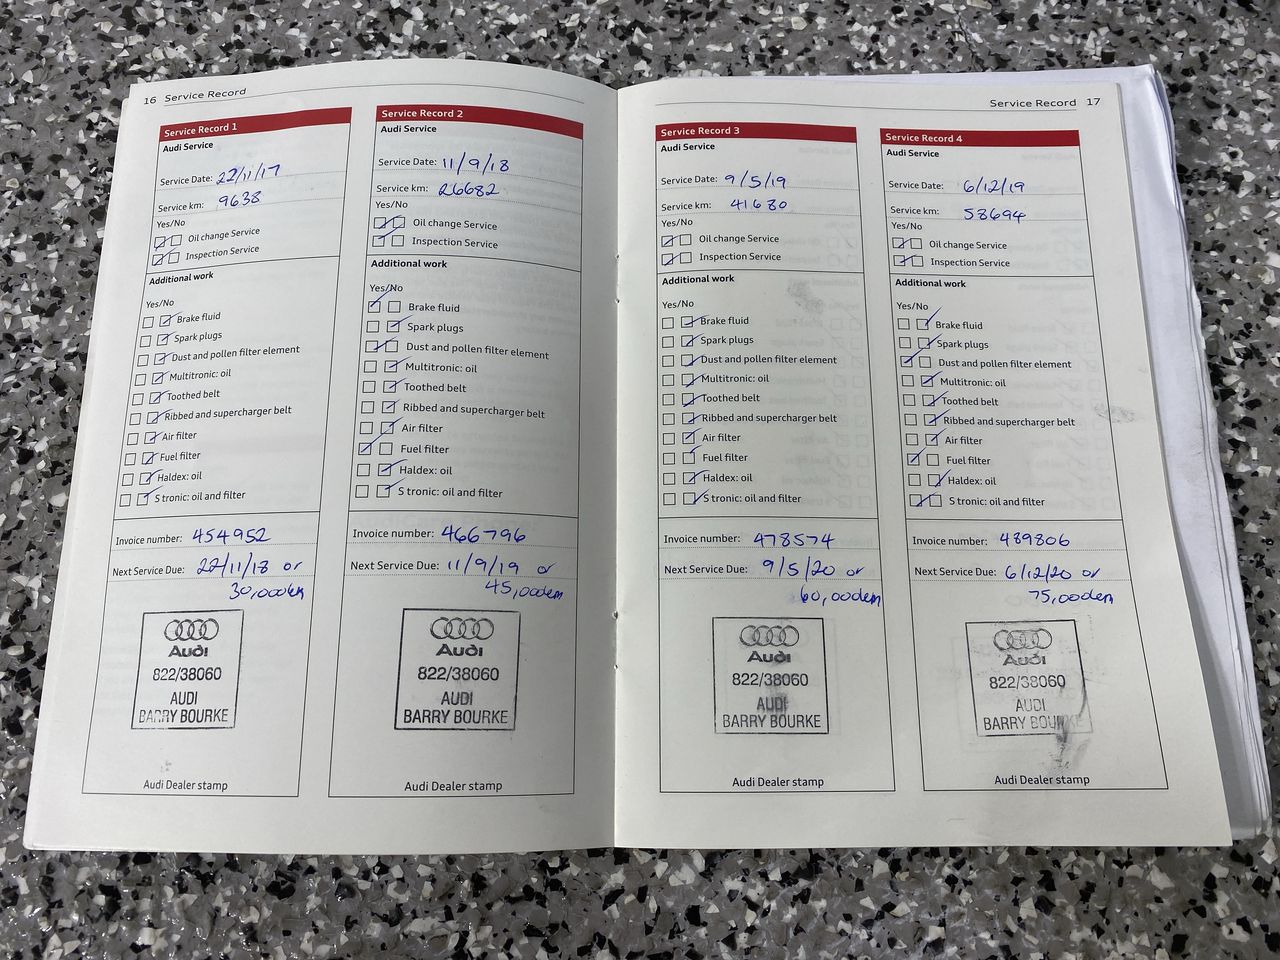 16 Service Record
Service Record 1
Audi Service
Service Date: 22/11/17
Service km: 9638
Yes/No
Oil change Service
Inspection Service
Additional work
Yes/No
Brake fluid
Spark plugs
Dust and pollen filter element
Multitronic: oil
Toothed belt
Ribbed and supercharger belt
Air filter
Fuel filter
Haldex: oil
S tronic: oil and filter
Invoice number: 454952
Next Service Due: 22/11/18 or
30,000km
Audi
822/38060
AUDI
BARRY BOURKE
Audi Dealer stamp
Service Record 2
Audi Service
Service Date: 11/9/18
Service km: 26682
Yes/No
Oil change Service
Inspection Service
Additional work
Yes/No
Brake fluid
Spark plugs
Dust and pollen filter element
Multitronic: oil
Toothed belt
Ribbed and supercharger belt
Air filter
Fuel filter
Haldex: oil
S tronic: oil and filter
Invoice number: 466796
Next Service Due: 11/9/19 or
45,000km
Audi
822/38060
AUDI
BARRY BOURKE
Audi Dealer stamp
Service Record 17
Service Record 3
Audi Service
Service Date: 9/5/19
Service km: 41680
Yes/No
Oil change Service
Inspection Service
Additional work
Yes/No
Brake fluid
Spark plugs
Dust and pollen filter element
Multitronic: oil
Toothed belt
Ribbed and supercharger belt
Air filter
Fuel filter
Haldex: oil
S tronic: oil and filter
Invoice number: 478574
Next Service Due: 9/5/20 or
60,000km
Audi
822/38060
AUDI
BARRY BOURKE
Audi Dealer stamp
Service Record 4
Audi Service
Service Date: 6/12/19
Service km: 58694
Yes/No
Oil change Service
Inspection Service
Additional work
Yes/No
Brake fluid
Spark plugs
Dust and pollen filter element
Multitronic: oil
Toothed belt
Ribbed and supercharger belt
Air filter
Fuel filter
Haldex: oil
S tronic: oil and filter
Invoice number: 489806
Next Service Due: 6/12/20 or
75,000km
Audi
822/38060
AUDI
BARRY BOURKE
Audi Dealer stamp